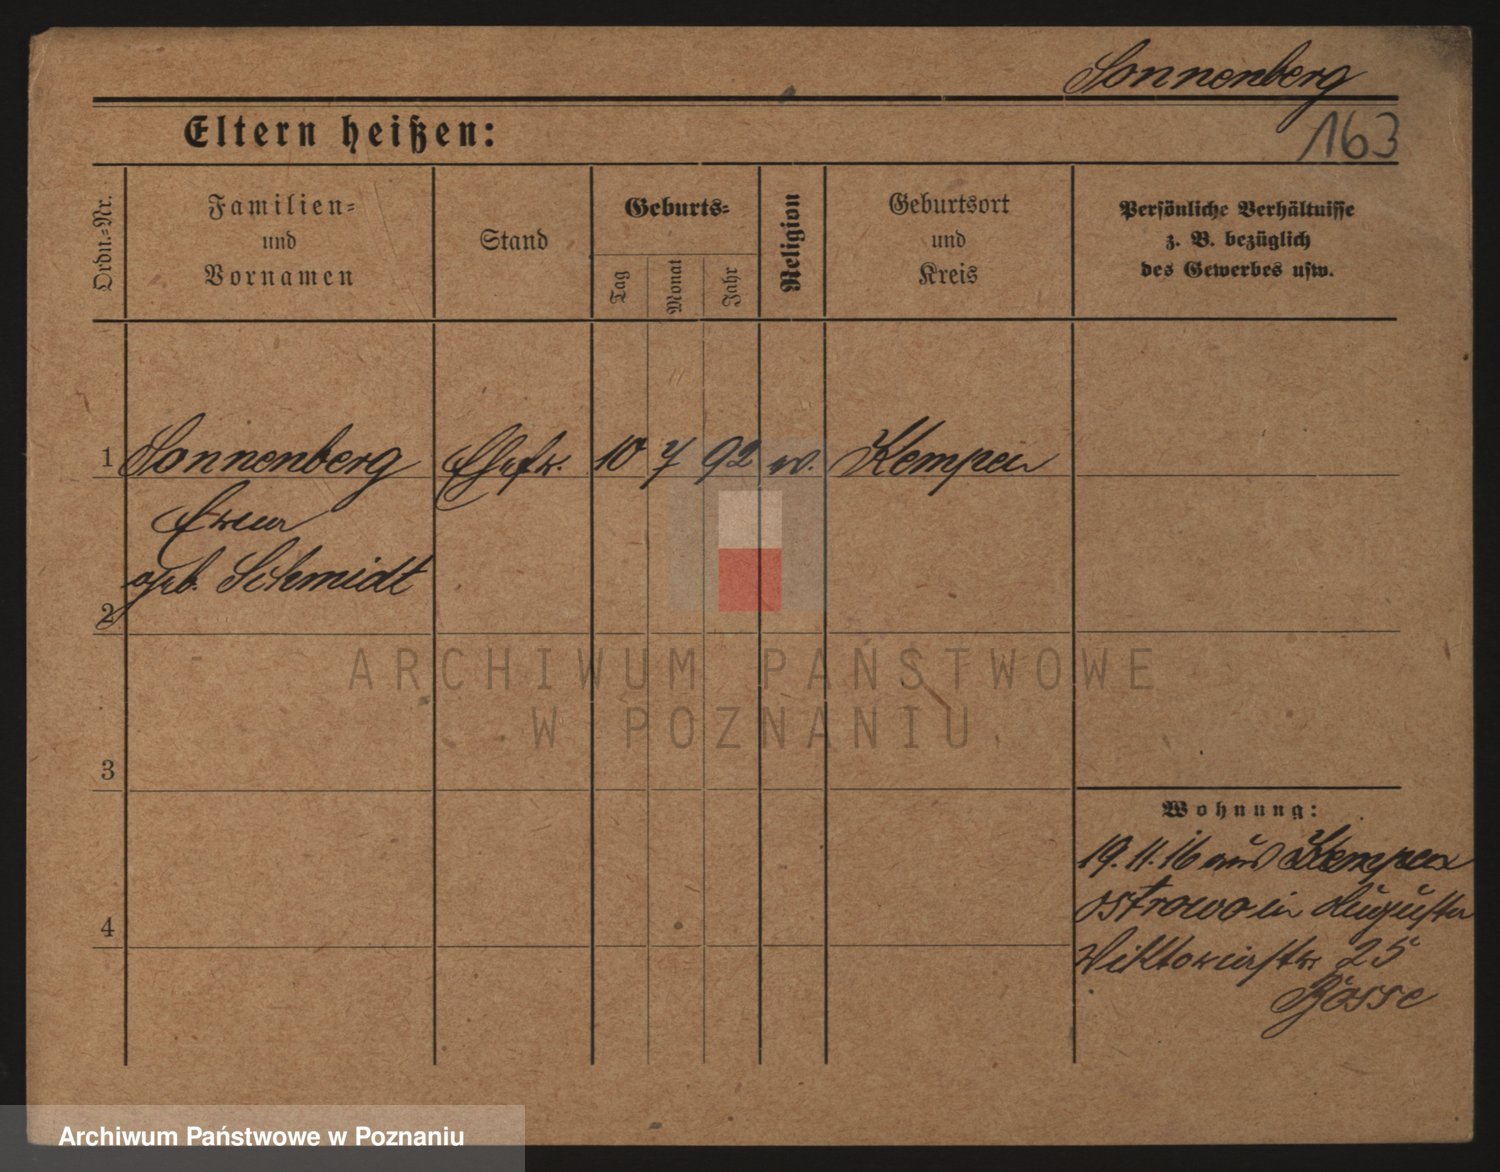 Sonnenberg
163
Eltern heißen:
Ordn.-Nr.
Familien-
und
Vornamen
Stand
Geburts-
Tag
Monat
Jahr
Religion
Geburtsort
und
Kreis
Persönliche Verhältnisse
z. B. bezüglich
des Gewerbes usw.
1 Sonnenberg Ehefr. 10 7 92 Kempen
geb. Schmidt
2
ARCHIWUM PAŃSTWOWE
W POZNANIU
3
Wohnung:
19.11.16 aus Kempen
4
Ostrowo in Augusta
Viktoriastr 25
Posse
Archiwum Państwowe w Poznaniu